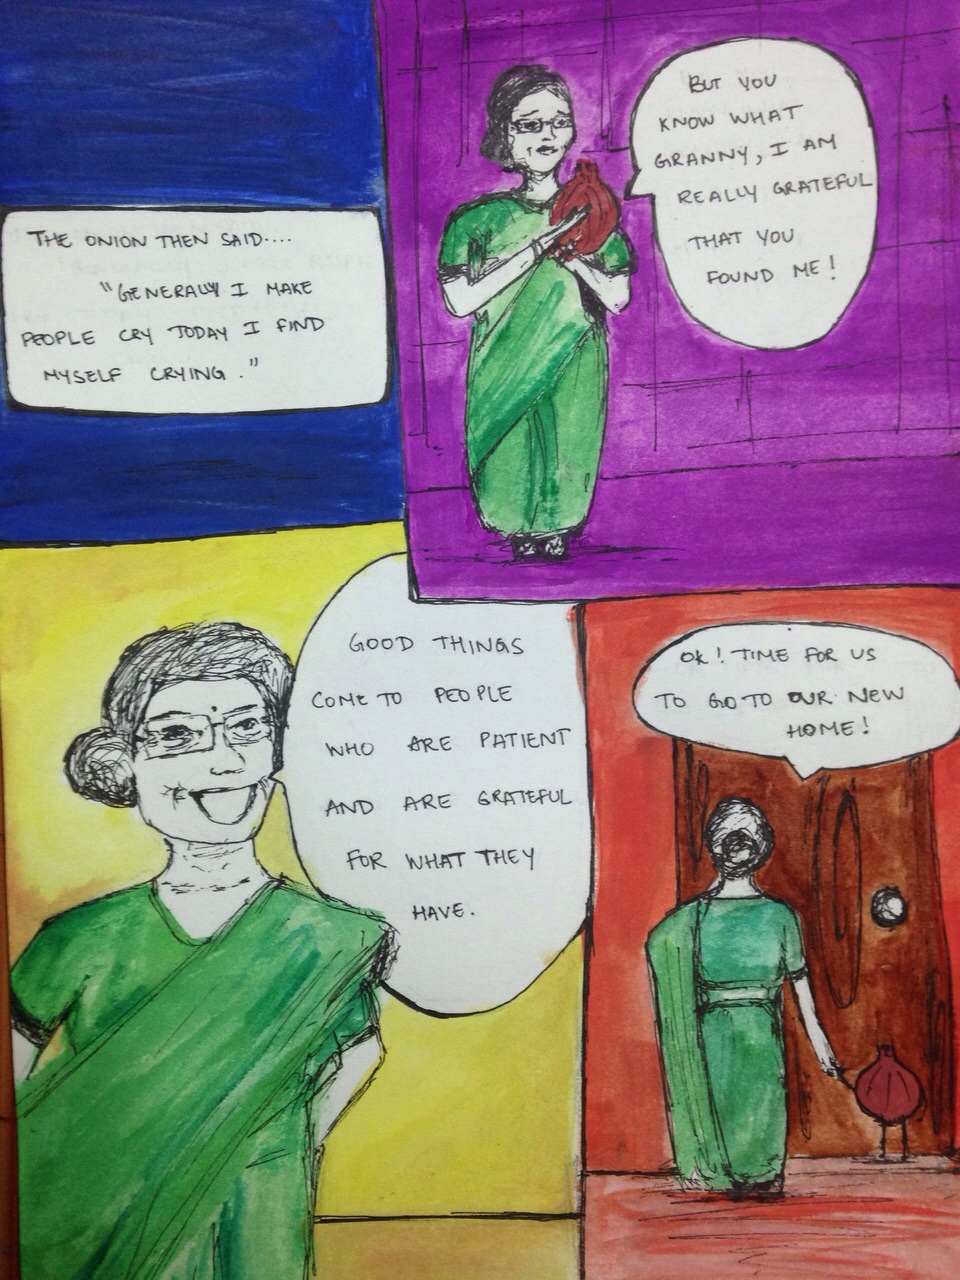 THE ONION THEN SAID....
"GENERALLY I MAKE
PEOPLE CRY TODAY I FIND
MYSELF CRYING."
BUT YOU
KNOW WHAT
GRANNY, I AM
REALLY GRATEFUL
THAT YOU
FOUND ME!
GOOD THINGS
COME TO PEOPLE
WHO ARE PATIENT
AND ARE GRATEFUL
FOR WHAT THEY
HAVE.
OK! TIME FOR US
TO GO TO OUR NEW
HOME!